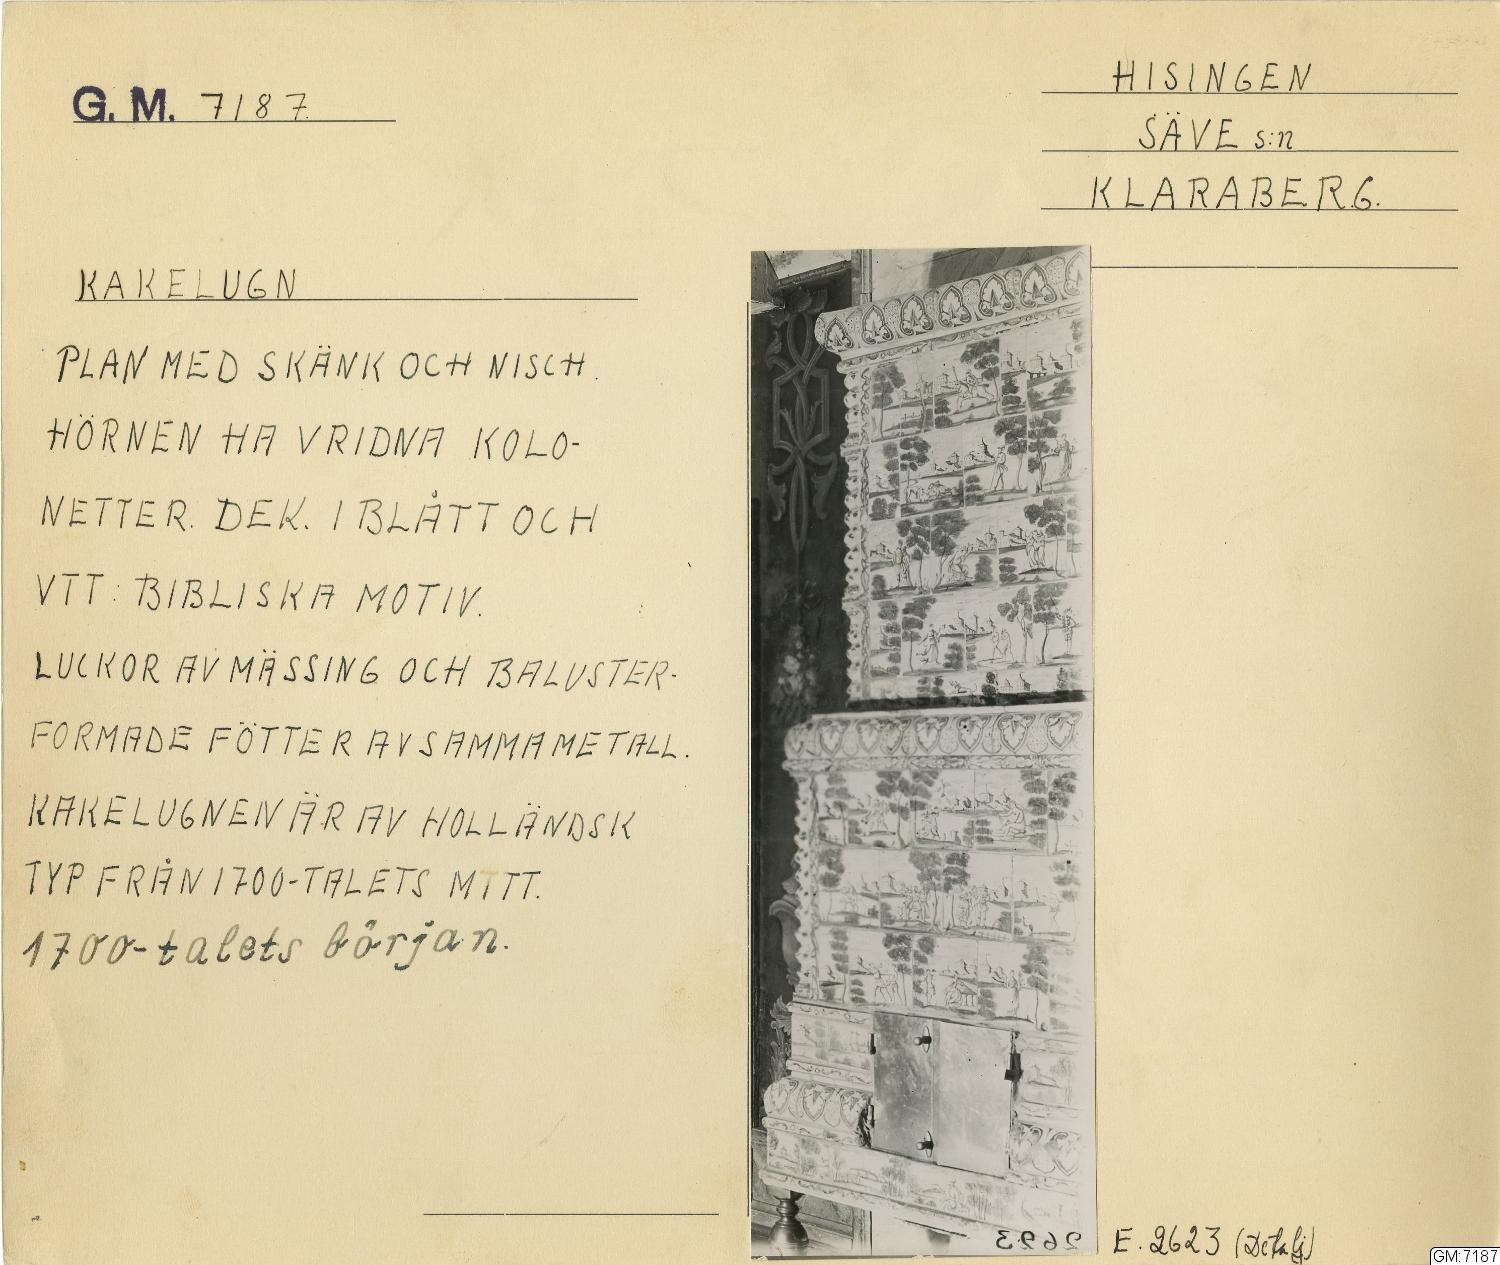 G. M. 7187
HISINGEN
SÄVE s:n
KLARABERG.
KAKELUGN
PLAN MED SKÄNK OCH NISCH.
HÖRNEN HA VRIDNA KOLO-
NETTER. DEK. I BLÅTT OCH
VTT: BIBLISKA MOTIV.
LUCKOR AV MÄSSING OCH BALUSTER-
FORMADE FÖTTER AV SAMMA METALL.
KAKELUGNEN ÄR AV HOLLÄNDSK
TYP FRÅN 1700-TALETS MITT.
1700-talets början.
2623
E. 2623 (Detalj)
GM:7187